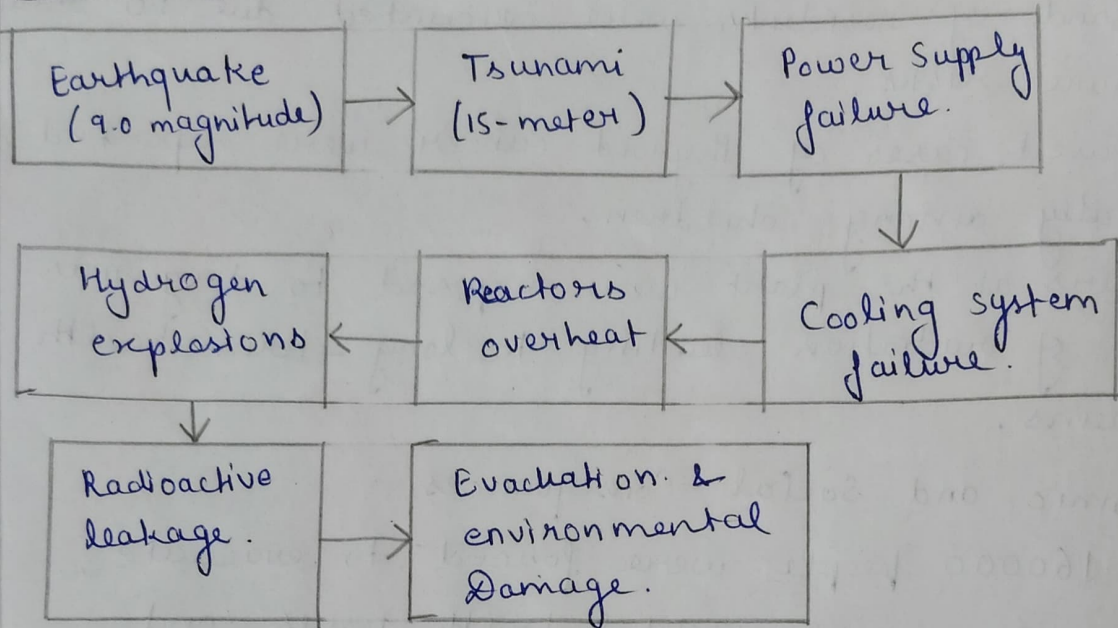 Earthquake
(9.0 magnitude)
Tsunami
(15-meter)
Power Supply
failure.
Cooling system
failure.
Reactors
overheat
Hydrogen
explosions
Radioactive
leakage.
Evacuation. &
environmental
Damage.